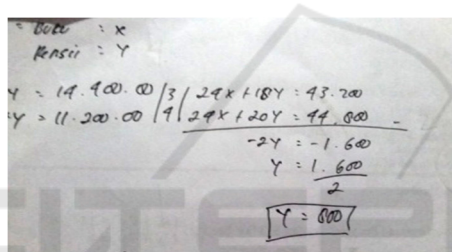 = Buku : x
Pensil : Y
Y = 14.400.00 | 3 | 24x + 18Y = 43.200
Y = 11.200.00 | 4 | 24x + 20Y = 44.800 -
-2Y = -1.600
Y = 1.600
2
Y = 800